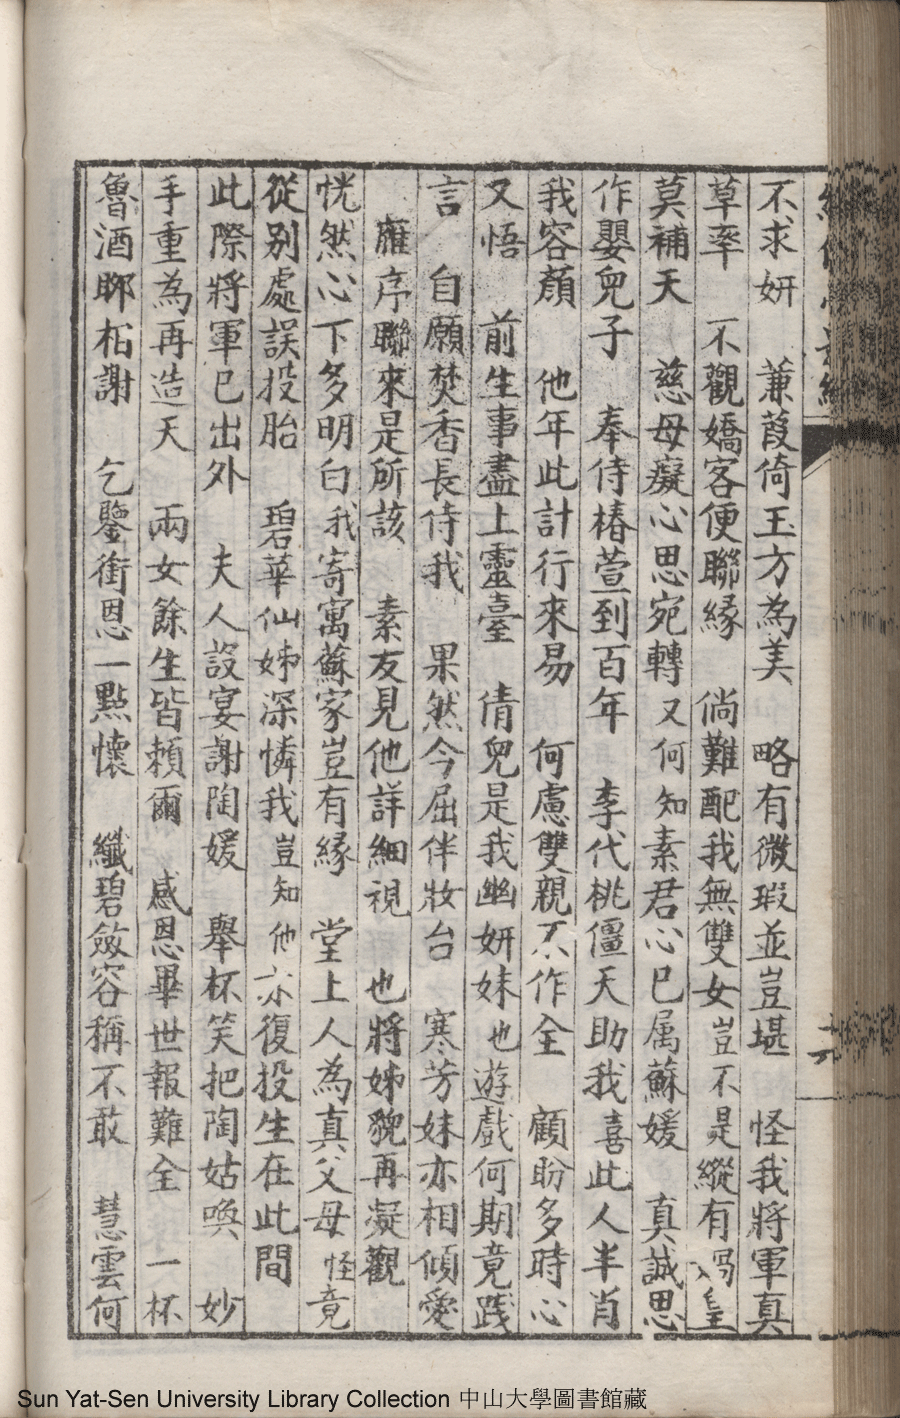 不求妍　蒹葭倚玉方為美　略有微瑕並豈堪　怪我將軍真
草率　不觀嬌客便聯緣　倘難配我無雙女豈不是縱有媧皇
莫補天　慈母癡心思宛轉又何知素君心已属蘇媛　真誠思
作嬰兒子　奉侍椿萱到百年　李代桃僵天助我喜此人半肖
我容顏　他年此計行來易　何慮雙親不作全　顧盼多時心
又悟　前生事盡上靈臺　倩兒是我幽妍妹也遊戲何期竟踐
言　自願焚香長侍我　果然今屈伴妝台　寒芳妹亦相傾愛
雁序聯來是所該　素友見他詳細視　也將姊貌再凝觀
恍然心下多明白我寄寓蘇家豈有緣　堂上人為真父母怪竟
從别處誤投胎　碧華仙姊深憐我豈知他亦復投生在此間
此際將軍已出外　夫人設宴謝陶媛　舉杯笑把陶姑喚　妙
手重為再造天　兩女餘生皆賴爾　感恩畢世報難全　一杯
魯酒聊相謝　乞鑒銜恩一點懷　纖碧斂容稱不敢　慧雲何
Sun Yat-Sen University Library Collection 中山大學圖書館藏